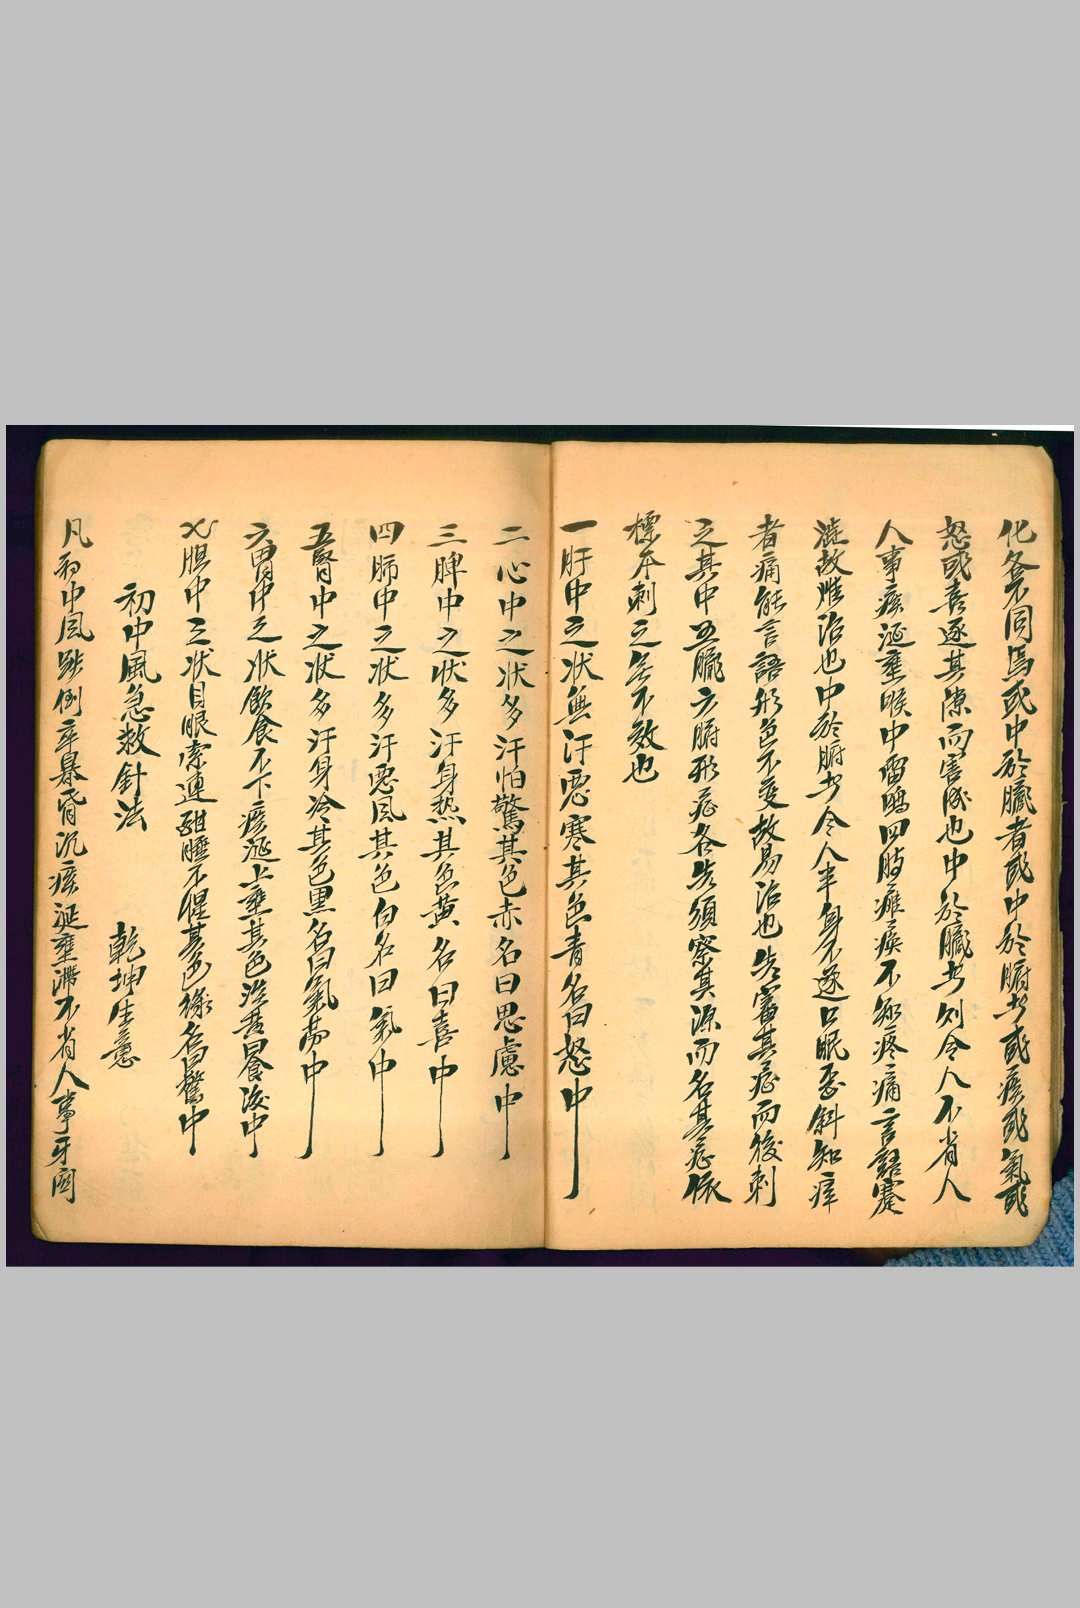 化各不同焉或中於臟者或中於腑者或痰或氣或
怒或喜逐其隙而害成也中於臟者則令人不省人
人事痰涎壅喉中雷鳴四肢癱瘓不知疼痛言語蹇
澁故难治也中於腑者令人半身不遂口眼歪斜知痒
者痛能言語形色不变故易治也先審其症而後刺
之其中五臟六腑形症各先須察其源而名其症依
標本刺之無不效也
一肝中之状無汗恶寒其色青名曰怒中
二心中之状多汗怕驚其色赤名曰思慮中
三脾中之状多汗身热其色黄名曰喜中
四肺中之状多汗恶风其色白名曰氣中
五腎中之状多汗身冷其色黒名曰氣劳中
六胃中之状飲食不下痰涎上壅其色淡黄曰食後中
七胆中之状目眼牽連酣睡不惺其色绿名曰驚中
初中風急救針法 乾坤生意
凡初中风跌倒卒暴昏沉痰涎壅滞不省人事牙関